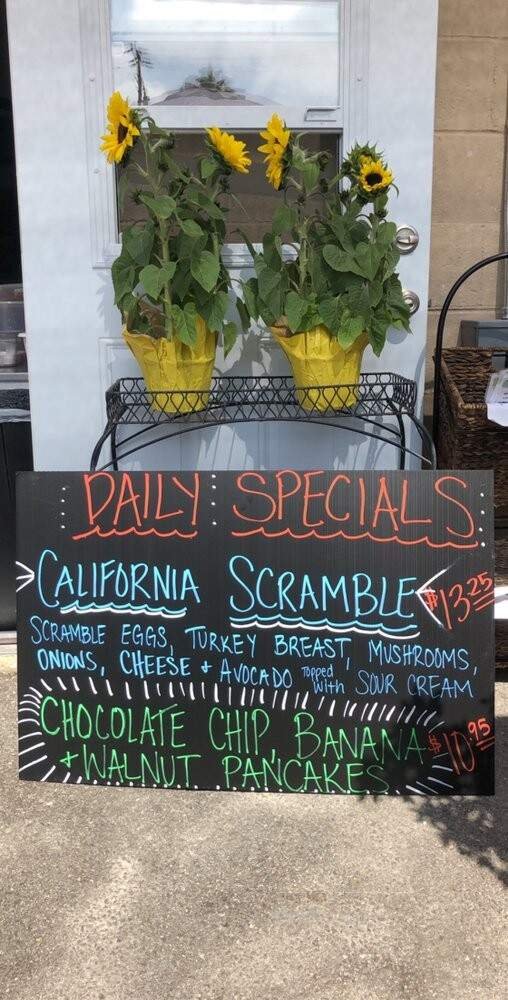 DAILY SPECIALS
CALIFORNIA SCRAMBLE $13.25
SCRAMBLE EGGS, TURKEY BREAST, MUSHROOMS,
ONIONS, CHEESE + AVOCADO Topped with SOUR CREAM
CHOCOLATE CHIP, BANANA $10.95
+ WALNUT PANCAKES